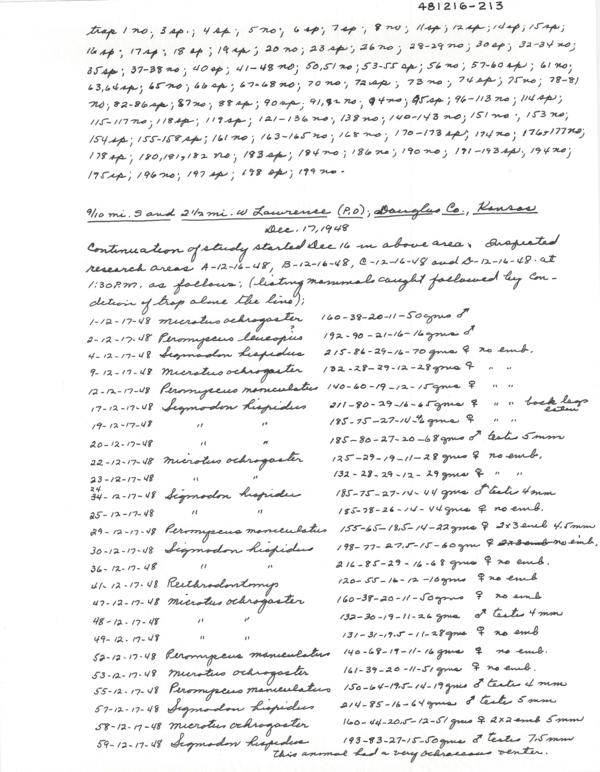 481216-213
trap 1 no; 3 sp.; 4 sp.; 5 no; 6 sp; 7 sp; 8 no; 11 sp; 12 sp; 14 sp; 15 sp;
16 sp; 17 sp; 18 sp; 19 sp; 20 no; 23 sp; 26 no; 28-29 no; 30 sp; 32-34 no;
35 sp; 37-38 no; 40 sp; 41-48 no; 50,51 no; 53-55 sp; 56 no; 57-60 sp; 61 no;
63,64 sp; 65 no; 66 sp; 67-68 no; 70 no; 72 sp; 73 no; 74 sp; 75 no; 78-81
no; 82-86 sp; 87 no; 88 sp; 90 sp; 91,92 no; 94 no; 95 sp; 96-113 no; 114 sp;
115-117 no; 118 sp; 119 sp; 121-136 no; 138 no; 140-143 no; 151 no; 153 no;
154 sp; 155-158 sp; 161 no; 163-165 no; 168 no; 170-173 sp; 174 no; 176+177 no;
178 sp; 180,181,182 no; 183 sp; 184 no; 186 no; 190 no; 191-193 sp; 194 no;
195 sp; 196 no; 197 sp; 198 sp; 199 no.
9/10 mi. S and 2 1/2 mi. W Lawrence (P.O), Douglas Co., Kansas
Dec. 17, 1948
Continuation of study started Dec 16 in above area. Inspected
research areas A-12-16-48, B-12-16-48, C-12-16-48 and D-12-16-48 at
1:30 P.M. as follows: (listing mammals caught followed by con-
dition of trap along the line);
1-12-17-48 Microtus ochrogaster 160-38-20-11-50 gms ♂
2-12-17-48 Peromyscus leucopus ? 192-90-21-16-16 gms ♂
4-12-17-48 Sigmodon hispidus 215-86-29-16-70 gms ♀ no emb.
9-12-17-48 Microtus ochrogaster 132-28-29-12-28 gms ♀ " "
12-12-17-48 Peromyscus maniculatus 140-60-19-12-15 gms ♀ " "
17-12-17-48 Sigmodon hispidus 211-80-29-16-65 gms ♀ " " back legs eaten
19-12-17-48 " " 185-75-27-14- gms ♀ " "
20-12-17-48 " " 185-80-27-20-68 gms ♂ testes 5 mm
22-12-17-48 Microtus ochrogaster 125-29-19-11-28 gms ♀ no emb.
23-12-17-48 " " 132-28-29-12-29 gms ♀ " "
24-12-17-48 Sigmodon hispidus 185-75-27-14-44 gms ♂ testes 4 mm
25-12-17-48 " " 185-78-26-14-44 gms ♀ no emb.
29-12-17-48 Peromyscus maniculatus 155-65-18.5-14-22 gms ♀ 2x3 emb 4.5 mm
30-12-17-48 Sigmodon hispidus 198-77-27.5-15-60 gm ♀ 2x3 emb no emb.
36-12-17-48 " " 216-85-29-16-68 gms ♀ no emb.
41-12-17-48 Reithrodontomys 120-55-16-12-10 gms ♀ no emb
47-12-17-48 Microtus ochrogaster 160-38-20-11-50 gms ♀ no emb
48-12-17-48 " " 132-30-19-11-26 gms ♂ testes 4 mm
49-12-17-48 " " 131-31-19.5-11-28 gms ♀ no emb
52-12-17-48 Peromyscus maniculatus 140-68-19-11-16 gms ♀ no emb.
53-12-17-48 Microtus ochrogaster 161-39-20-11-51 gms ♀ no emb.
55-12-17-48 Peromyscus maniculatus 150-64-19.5-14-19 gms ♂ testes 4 mm
57-12-17-48 Sigmodon hispidus 214-85-16-64 gms ♂ testes 5 mm
58-12-17-48 Microtus ochrogaster 160-44-20.5-12-51 gms ♀ 2x2 emb 5 mm
59-12-17-48 Sigmodon hispidus 193-83-27-15-50 gms ♂ testes 7.5 mm
This animal had a very ochraceous venter.